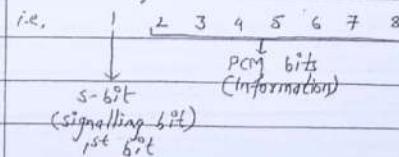 i.e. 1 2 3 4 5 6 7 8
PCM bits
(Information)
s-bit
(signalling bit)
1st bit